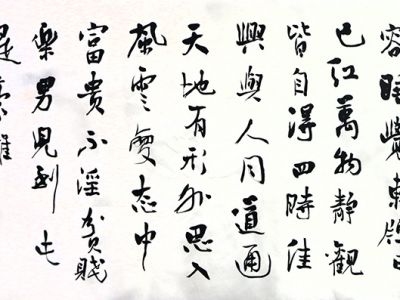 容睡覺東牕日
已紅萬物靜觀
皆自得四時佳
興與人同道通
天地有形外思入
風雲變态中
富貴不淫貧賤
樂男兒到此
是豪雄